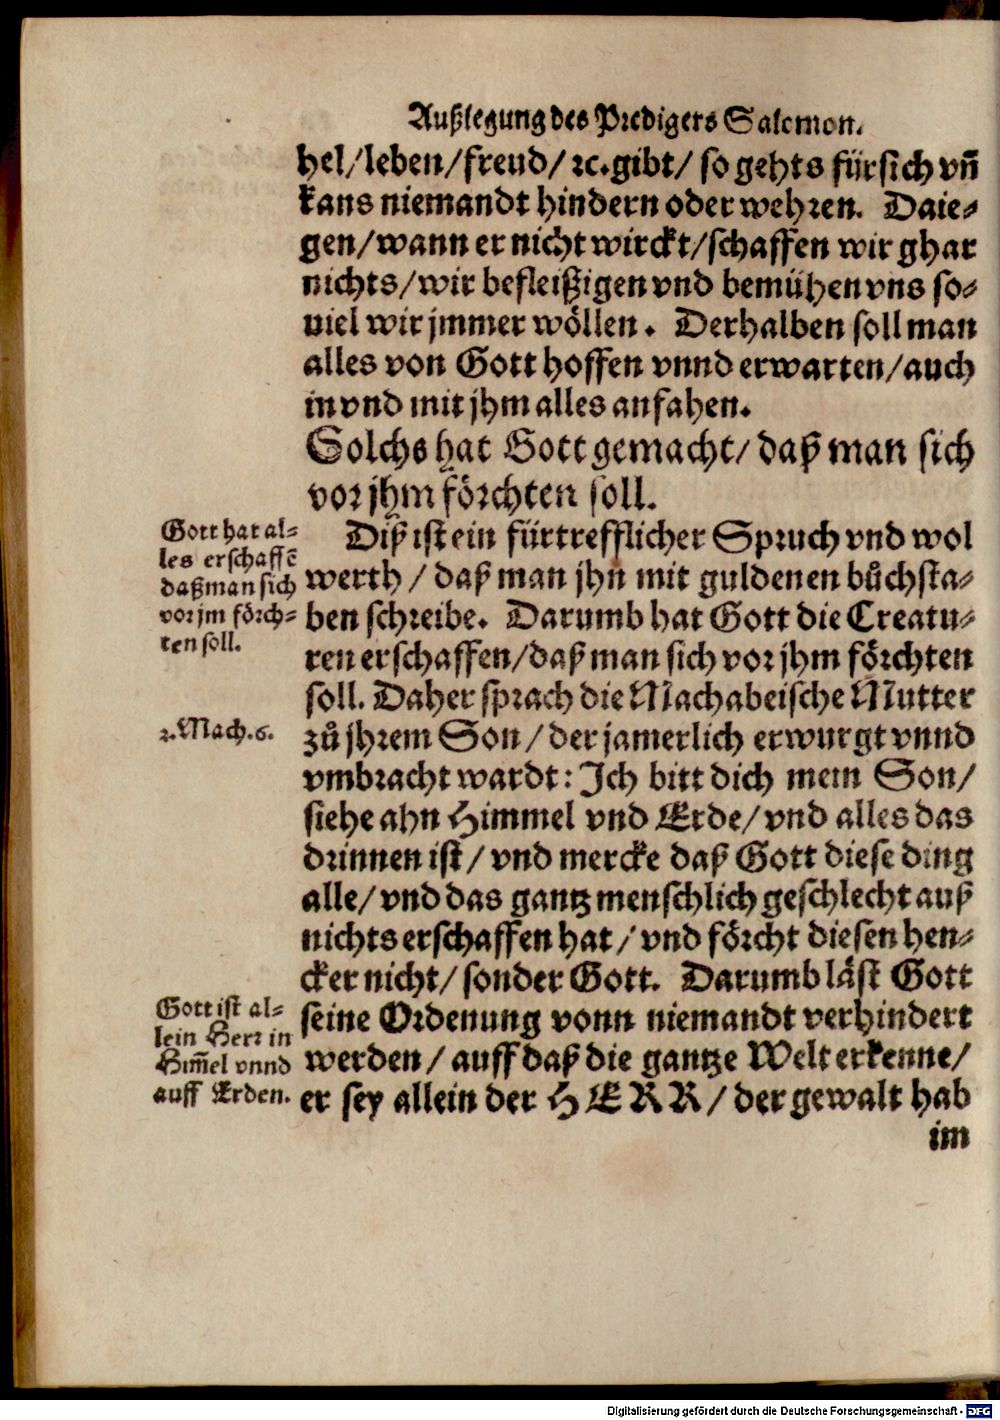 Außlegung des Predigers Salomon.
hel/leben/freud/ ꝛc. gibt/ so gehts fürsich vñ
kans niemandt hindern oder wehren. Daie-
gen/wann er nicht wirckt/schaffen wir ghar
nichts/wir befleißigen vnd bemühen vns so-
uiel wir jmmer wöllen. Derhalben soll man
alles von Gott hoffen vnnd erwarten/auch
in vnd mit jhm alles anfahen.
Solchs hat Gott gemacht/ daß man sich
vor jhm förchten soll.
Gott hat al-
les erschaffẽ
daß man sich
vor jm förch-
ten soll.
Diß ist ein fürtrefflicher Spruch vnd wol
werth/ daß man jhn mit guldenen bůchsta-
ben schreibe. Darumb hat Gott die Creatu-
ren erschaffen/daß man sich vor jhm förchten
soll. Daher sprach die Machabeische Mutter
2. Mach. 6.
zů jhrem Son/ der jamerlich erwurgt vnnd
vmbracht wardt: Ich bitt dich mein Son/
siehe ahn Himmel vnd Erde/ vnd alles das
drinnen ist/ vnd mercke daß Gott diese ding
alle/ vnd das gantz menschlich geschlecht auß
nichts erschaffen hat/ vnd förcht diesen hen-
cker nicht/ sonder Gott. Darumb läst Gott
Gott ist al-
lein Herr in
Him̃el vnnd
auff Erden.
seine Ordenung vonn niemandt verhindert
werden/ auff daß die gantze Welt erkenne/
er sey allein der HERR/ der gewalt hab
im
Digitalisierung gefördert durch die Deutsche Forschungsgemeinschaft - DFG